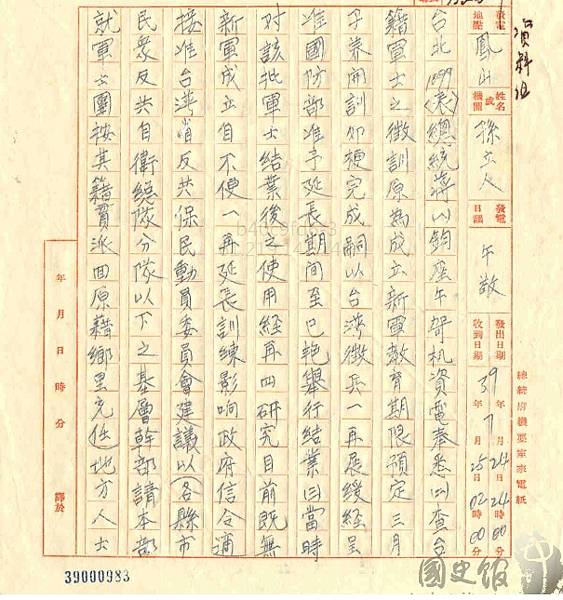 資料組
發電地點 鳳山 姓名或機關 孫立人 發電日韻 午敬 發出日期 39年7月24日24時00分 收到日期 25日02時00分
總統府機要室來電紙
台北1899(表)總統蔣山鈞座午智机資電奉悉(1)查台
籍軍士之徵訓原為成立新軍教育期限預定三月
子業開訓如梗完成嗣以台灣徵兵一再展緩經呈
准國防部准予延長期間至巳艳舉行結業(2)當時
對該批軍士結業後之使用經再四研究目前既無
新軍成立自不便一再延長訓練影响政府信令適
接准台灣省反共保民動員委員會建議以(各縣市
民眾反共自衛總隊分隊以下之基層幹部請本部
就軍士團按其籍貫派回原籍鄉里充任)地方人士
年月日時分 譯於
39000983
國史館